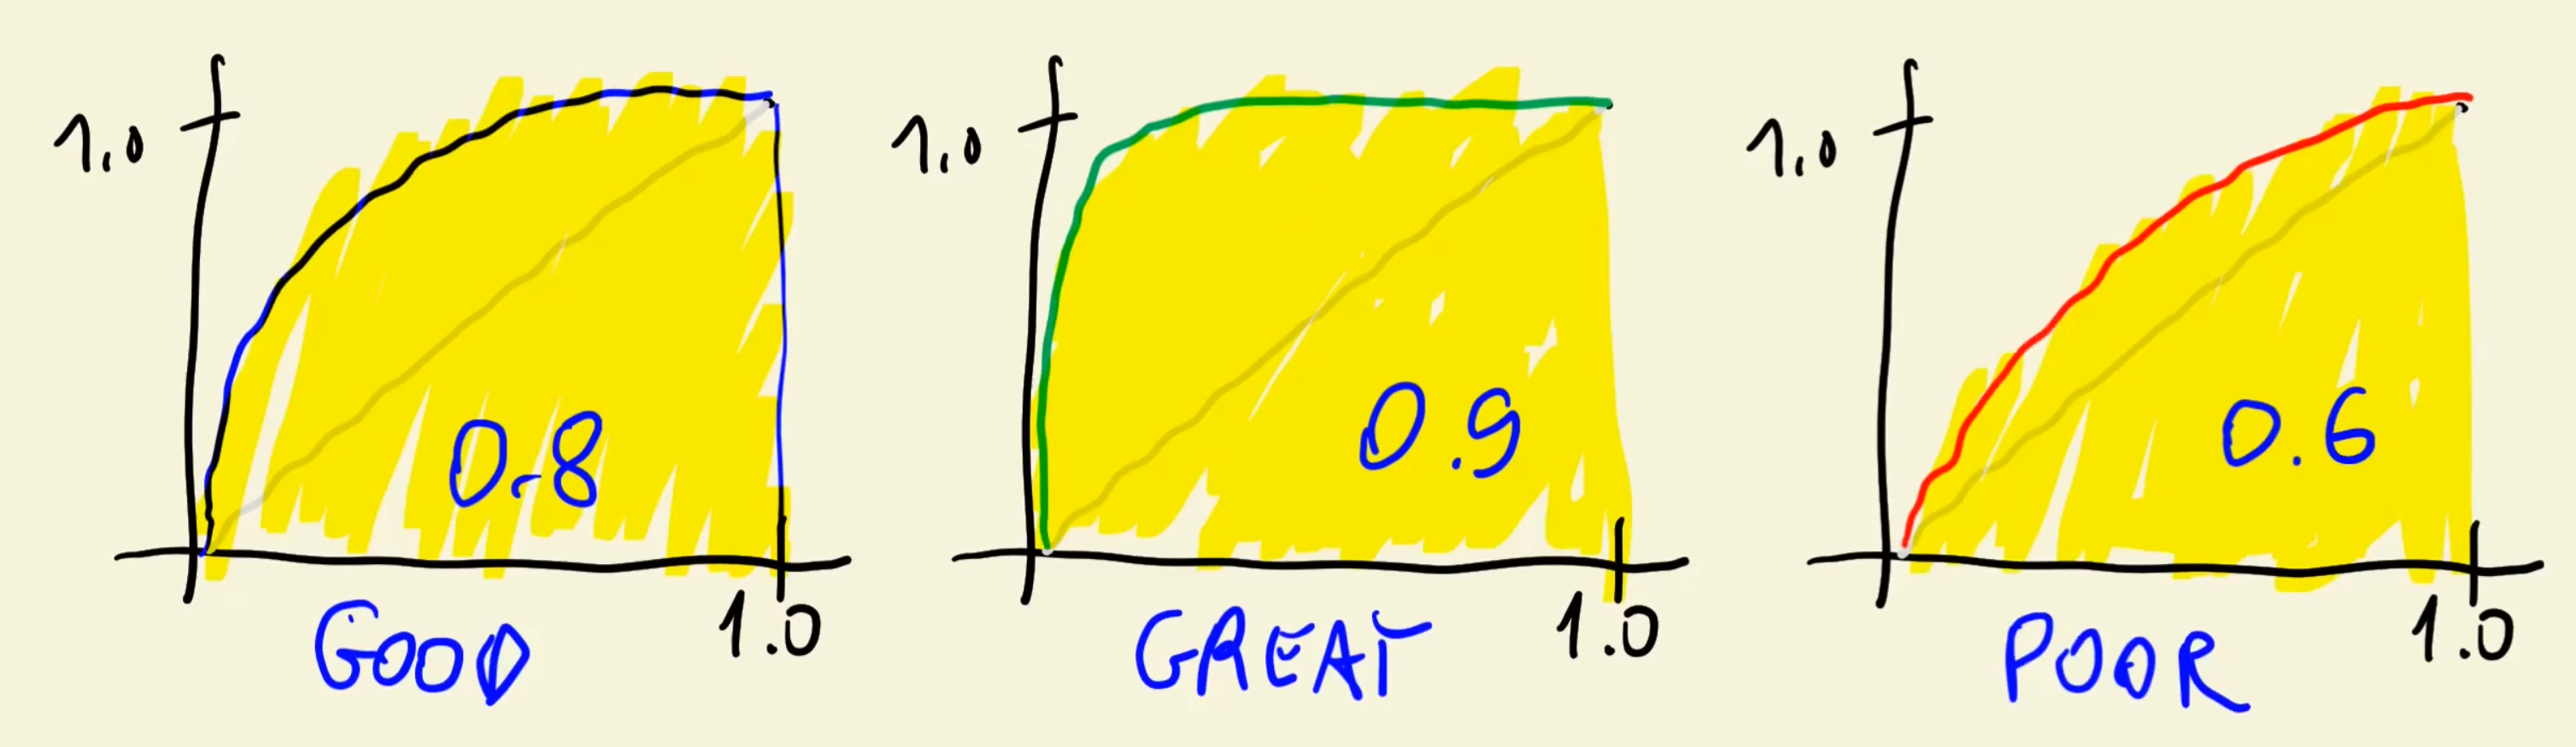 1.0
0.8
1.0
GOOD
1.0
0.9
1.0
GREAT
1.0
0.6
1.0
POOR